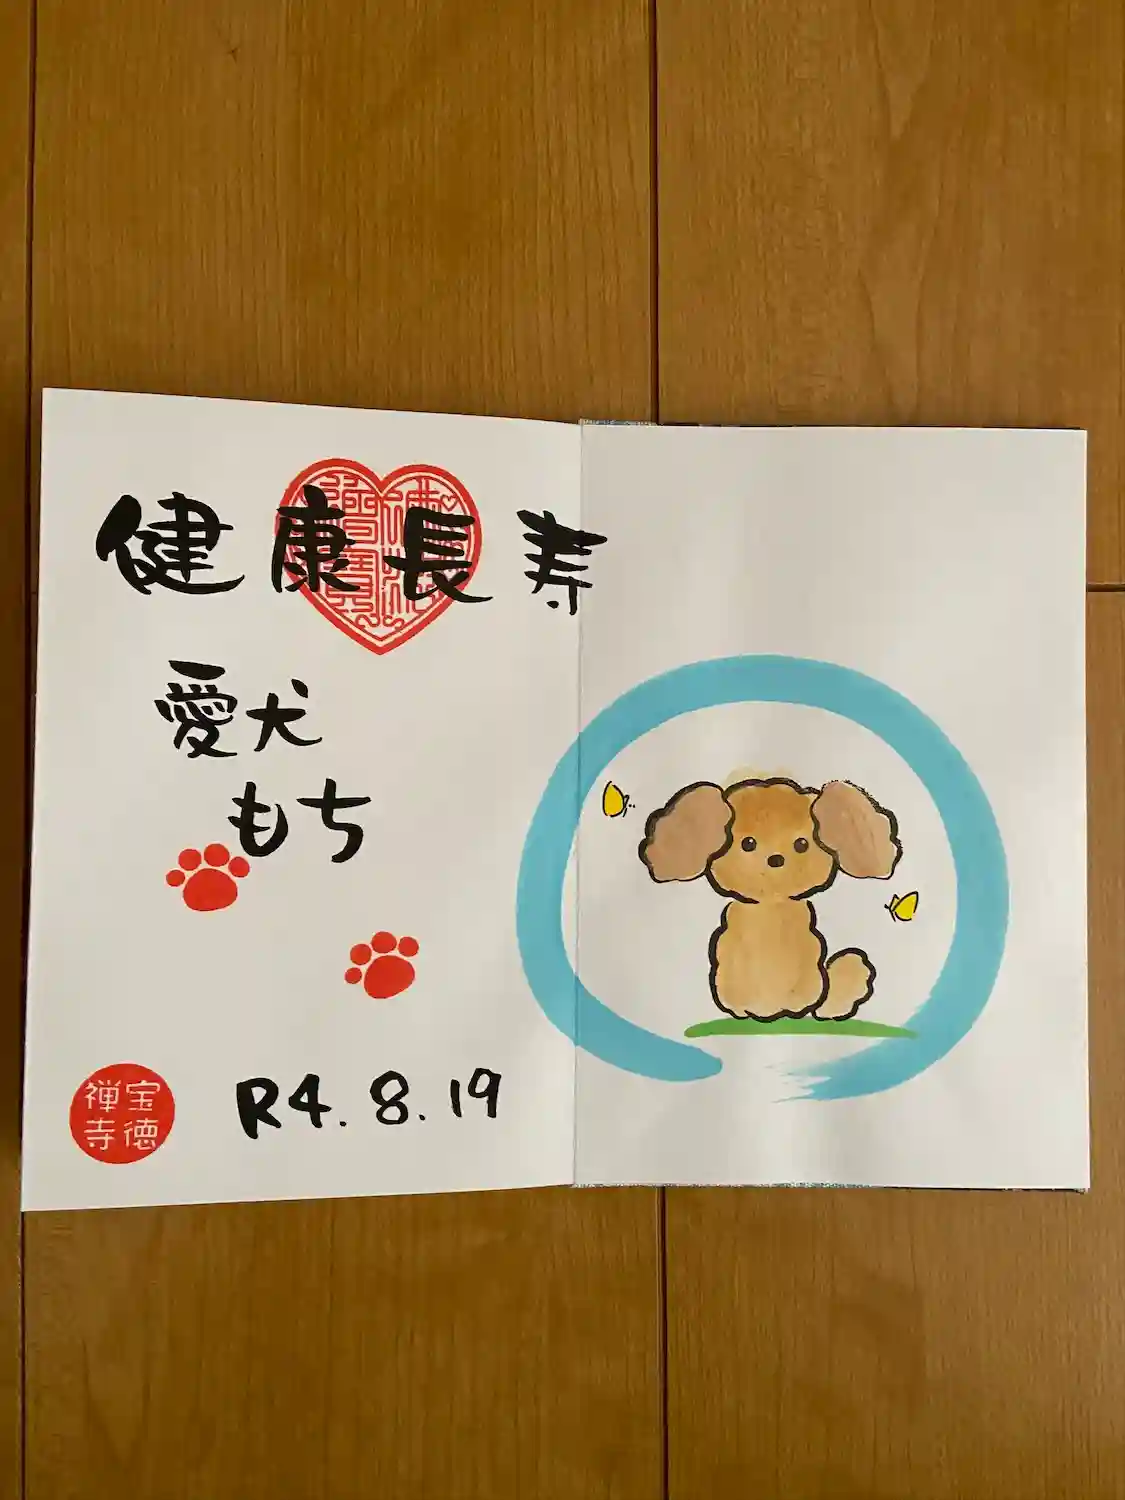 健康長寿
愛犬
もち
宝徳
禅寺
R4.8.19